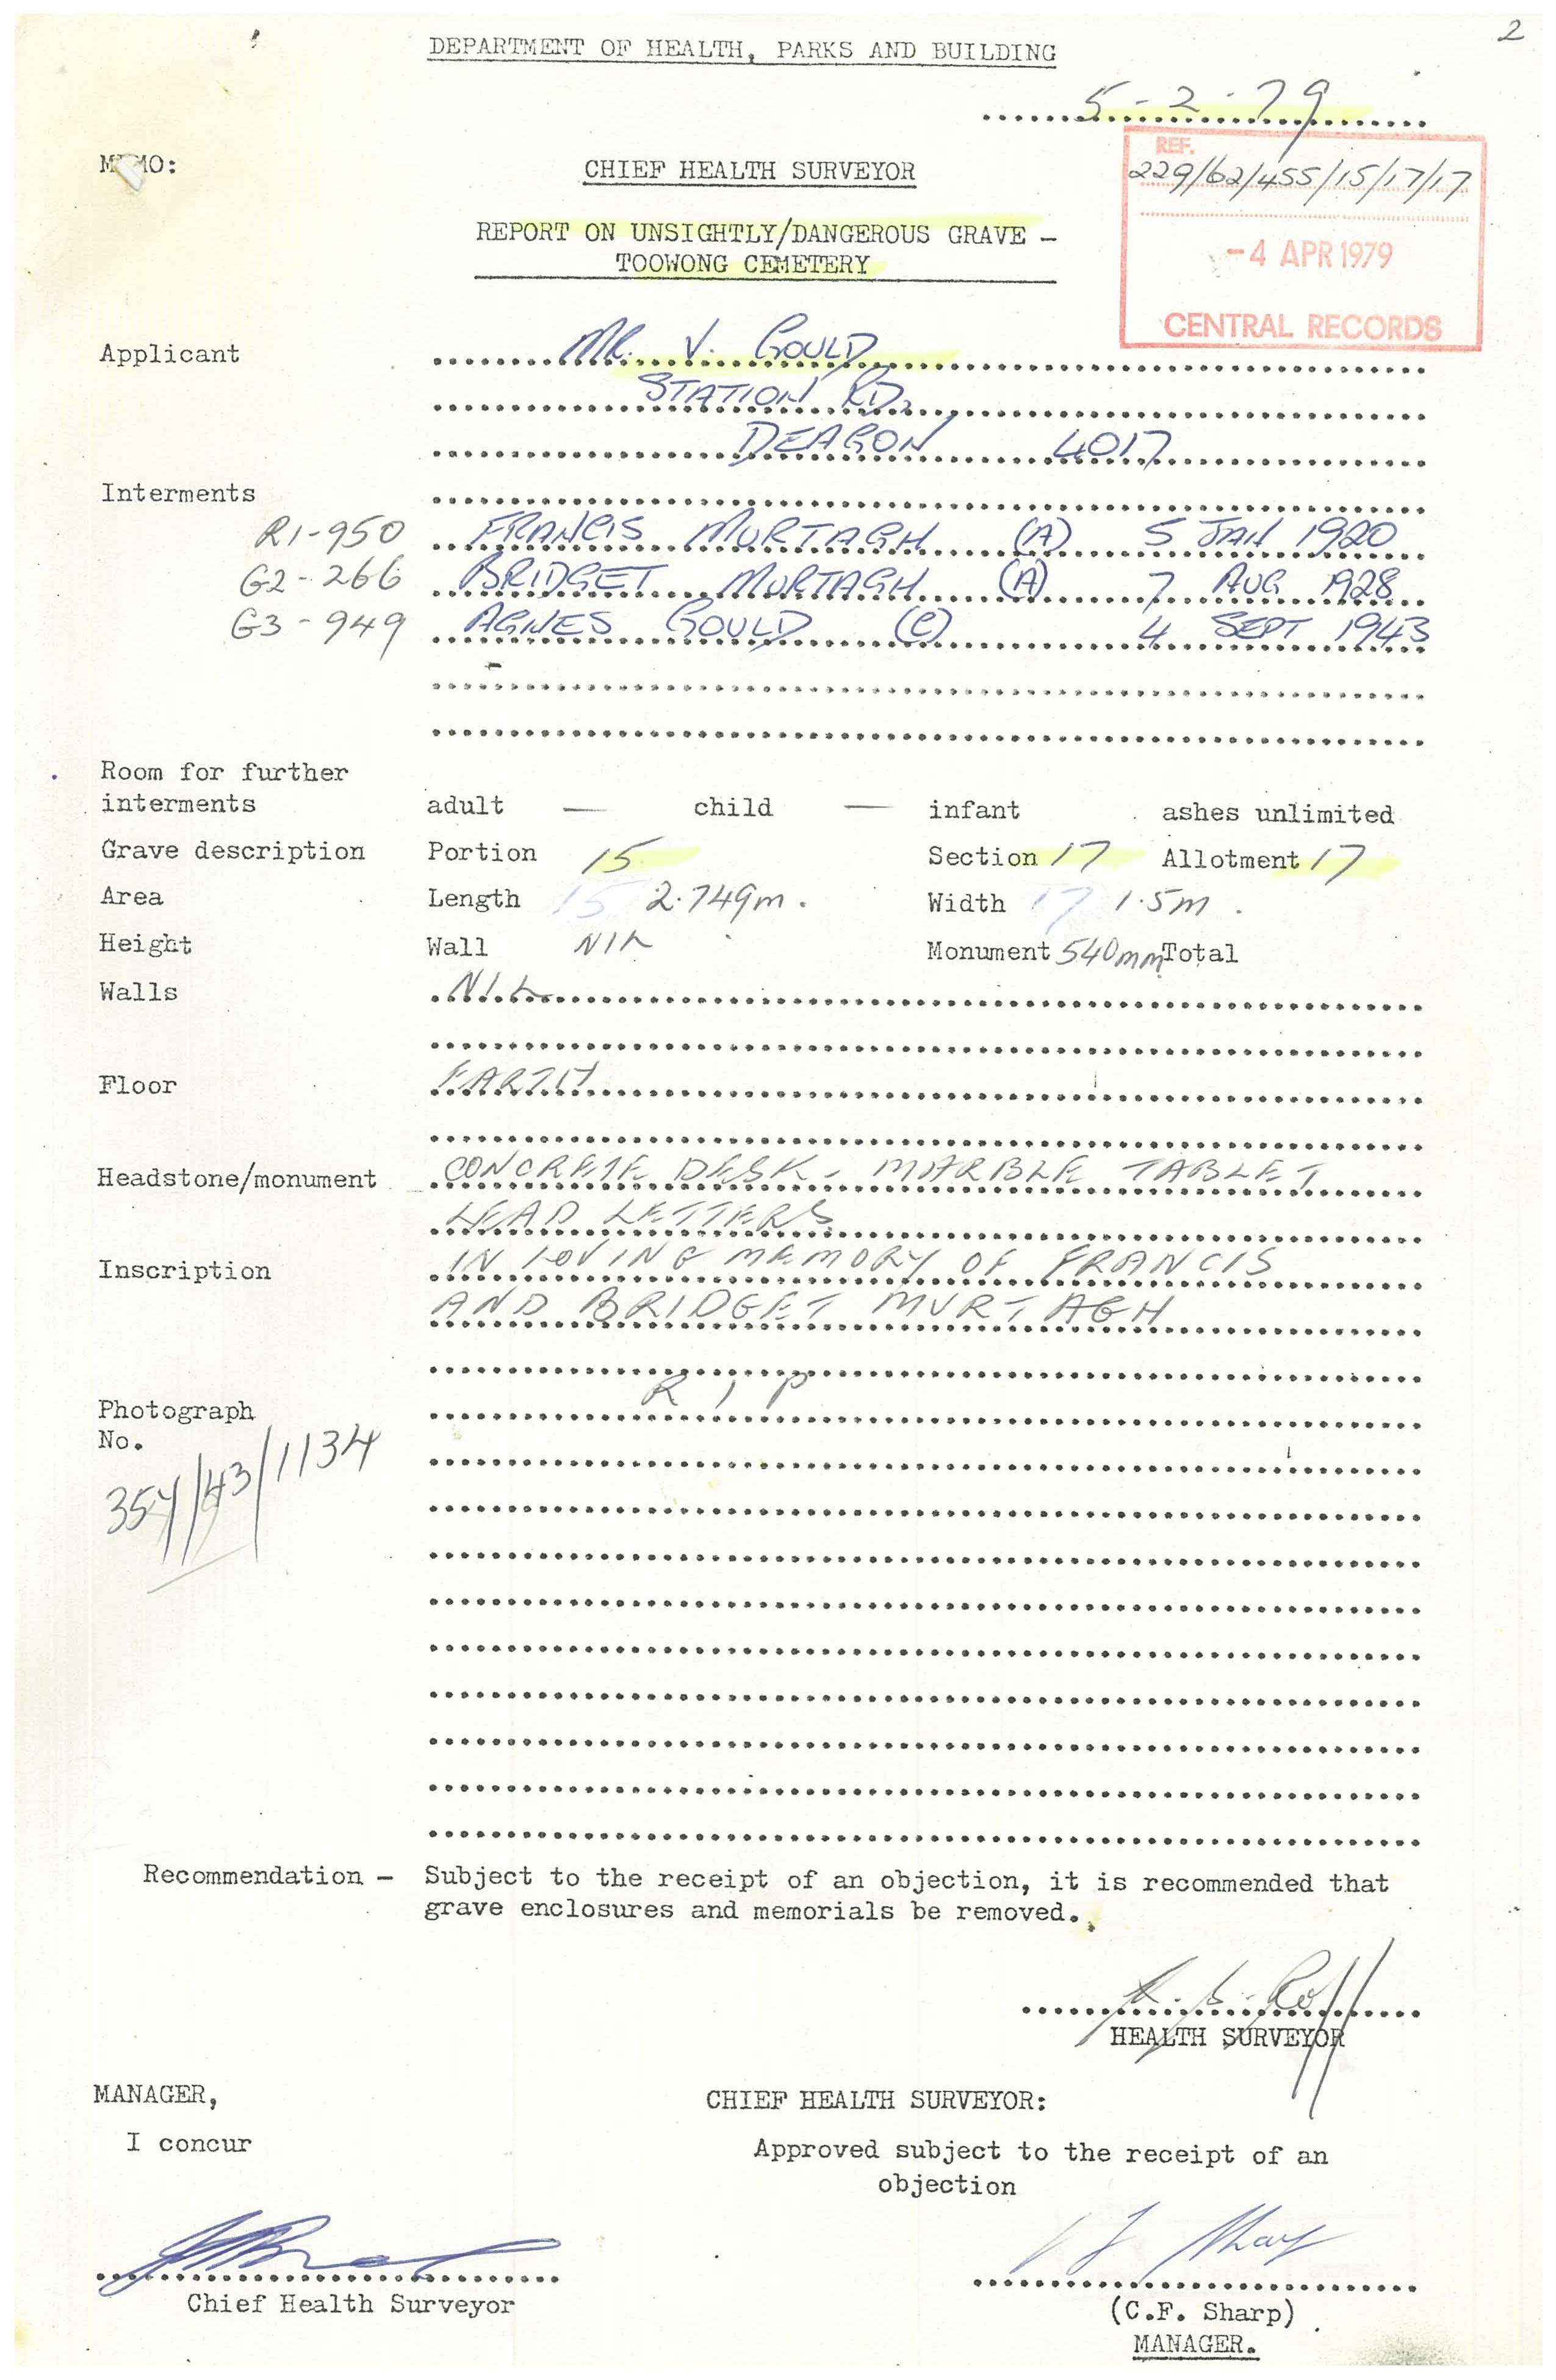 2
DEPARTMENT OF HEALTH, PARKS AND BUILDING
5-2-79
MEMO:
CHIEF HEALTH SURVEYOR
REF.
229/62/455/15/17/17
REPORT ON UNSIGHTLY/DANGEROUS GRAVE -
TOOWONG CEMETERY
-4 APR 1979
CENTRAL RECORDS
Applicant MR. V. GOULD
STATION RD,
DEAGON 4017
Interments
R1-950 FRANCIS MURTAGH (A) 5 JAN 1920
G2-266 BRIDGET MURTAGH (A) 7 AUG 1928
G3-949 AGNES GOULD (C) 4 SEPT 1943
Room for further
interments adult — child — infant ashes unlimited
Grave description Portion 15 Section 17 Allotment 17
Area Length 15 2.749m. Width 17 1.5m.
Height Wall NIL Monument 540mm Total
Walls NIL
Floor EARTH
Headstone/monument CONCRETE DESK - MARBLE TABLET
LEAD LETTERS
Inscription IN LOVING MEMORY OF FRANCIS
AND BRIDGET MURTAGH
R I P
Photograph
No.
354/43/1134
Recommendation - Subject to the receipt of an objection, it is recommended that
grave enclosures and memorials be removed.
HEALTH SURVEYOR
MANAGER,
CHIEF HEALTH SURVEYOR:
I concur
Approved subject to the receipt of an
objection
Chief Health Surveyor
(C.F. Sharp)
MANAGER.